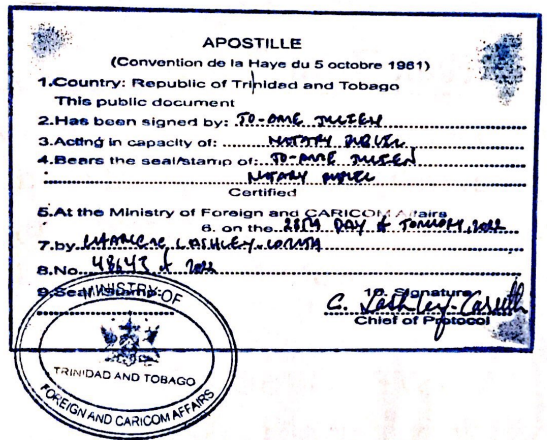 APOSTILLE
(Convention de la Haye du 5 octobre 1961)
1.Country: Republic of Trinidad and Tobago
This public document
2.Has been signed by: JO-ANNE JULIEN
3.Acting in capacity of: NOTARY PUBLIC
4.Bears the seal/stamp of: JO-ANNE JULIEN
NOTARY PUBLIC
Certified
5.At the Ministry of Foreign and CARICOM Affairs
6. on the 28TH DAY of JANUARY, 2022
7.by CHARLENE LASHLEY-
8.No. 48643 of 2022
9.Seal/Stamp:
10. Signature
C. Lashley-
Chief of Protocol
MINISTRY OF
TRINIDAD AND TOBAGO
FOREIGN AND CARICOM AFFAIRS